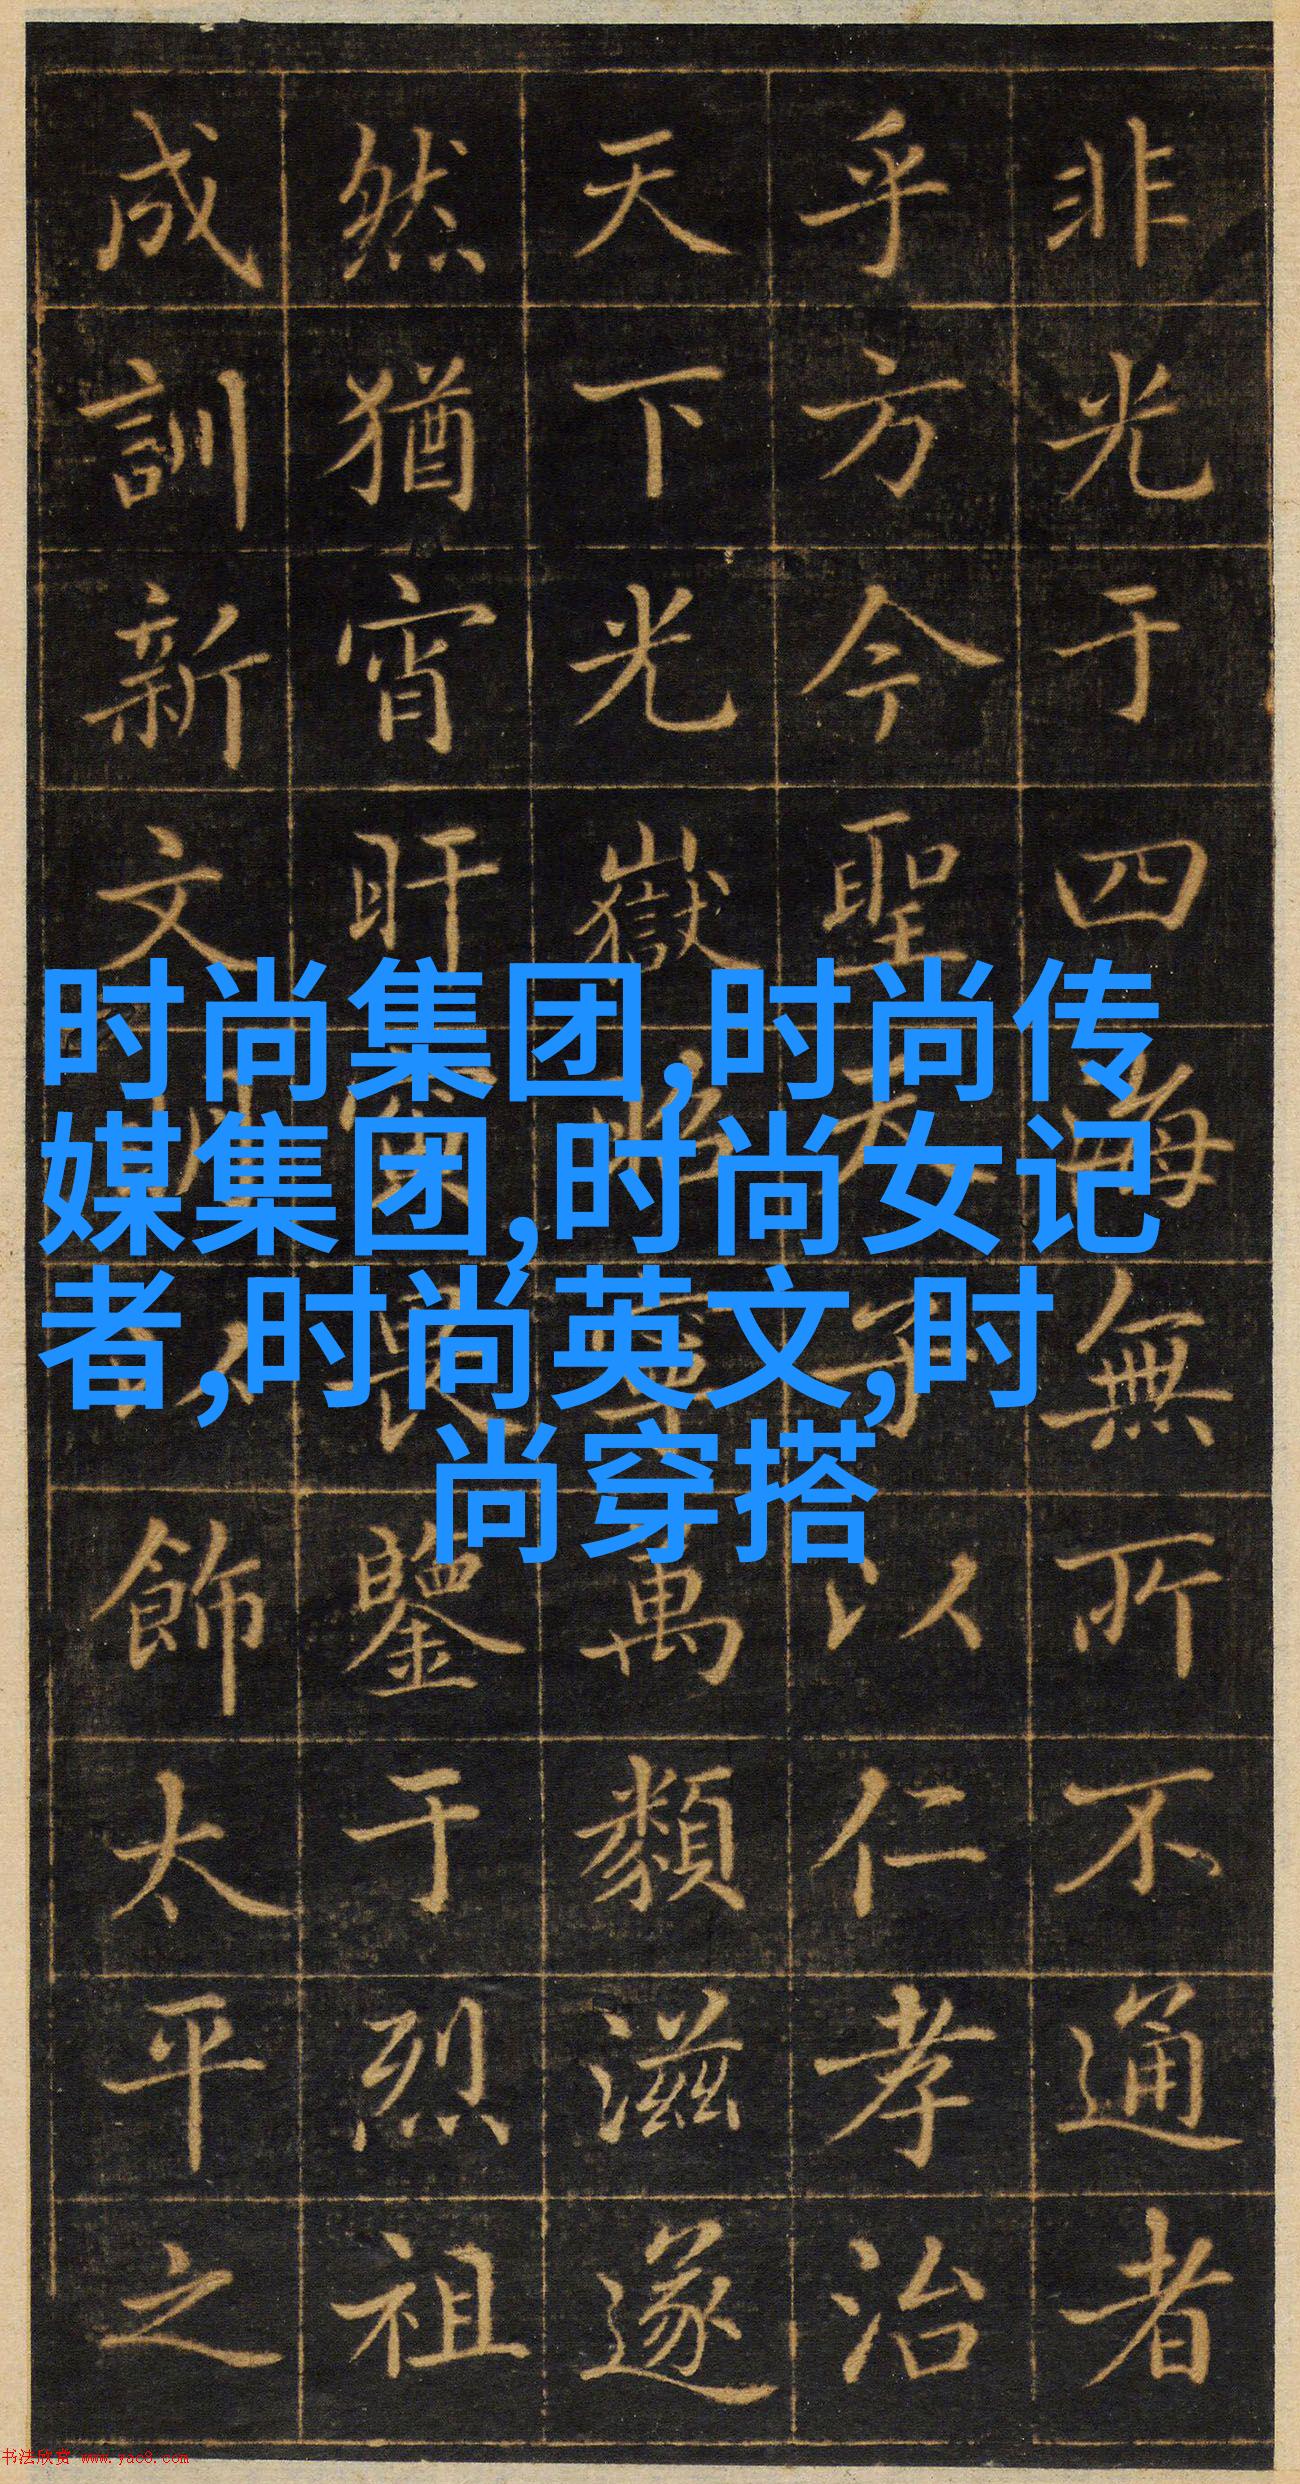 非光于四海無所不通者
乎方今聖天子以仁孝治
天下光嶽萬類滋遂
然猶宵旰寅畏鑒于烈祖
成訓新文以飾太平之
时尚集团,时尚传
媒集团,时尚女记
者,时尚英文,时
尚穿搭
书法欣赏 www.yac8.com